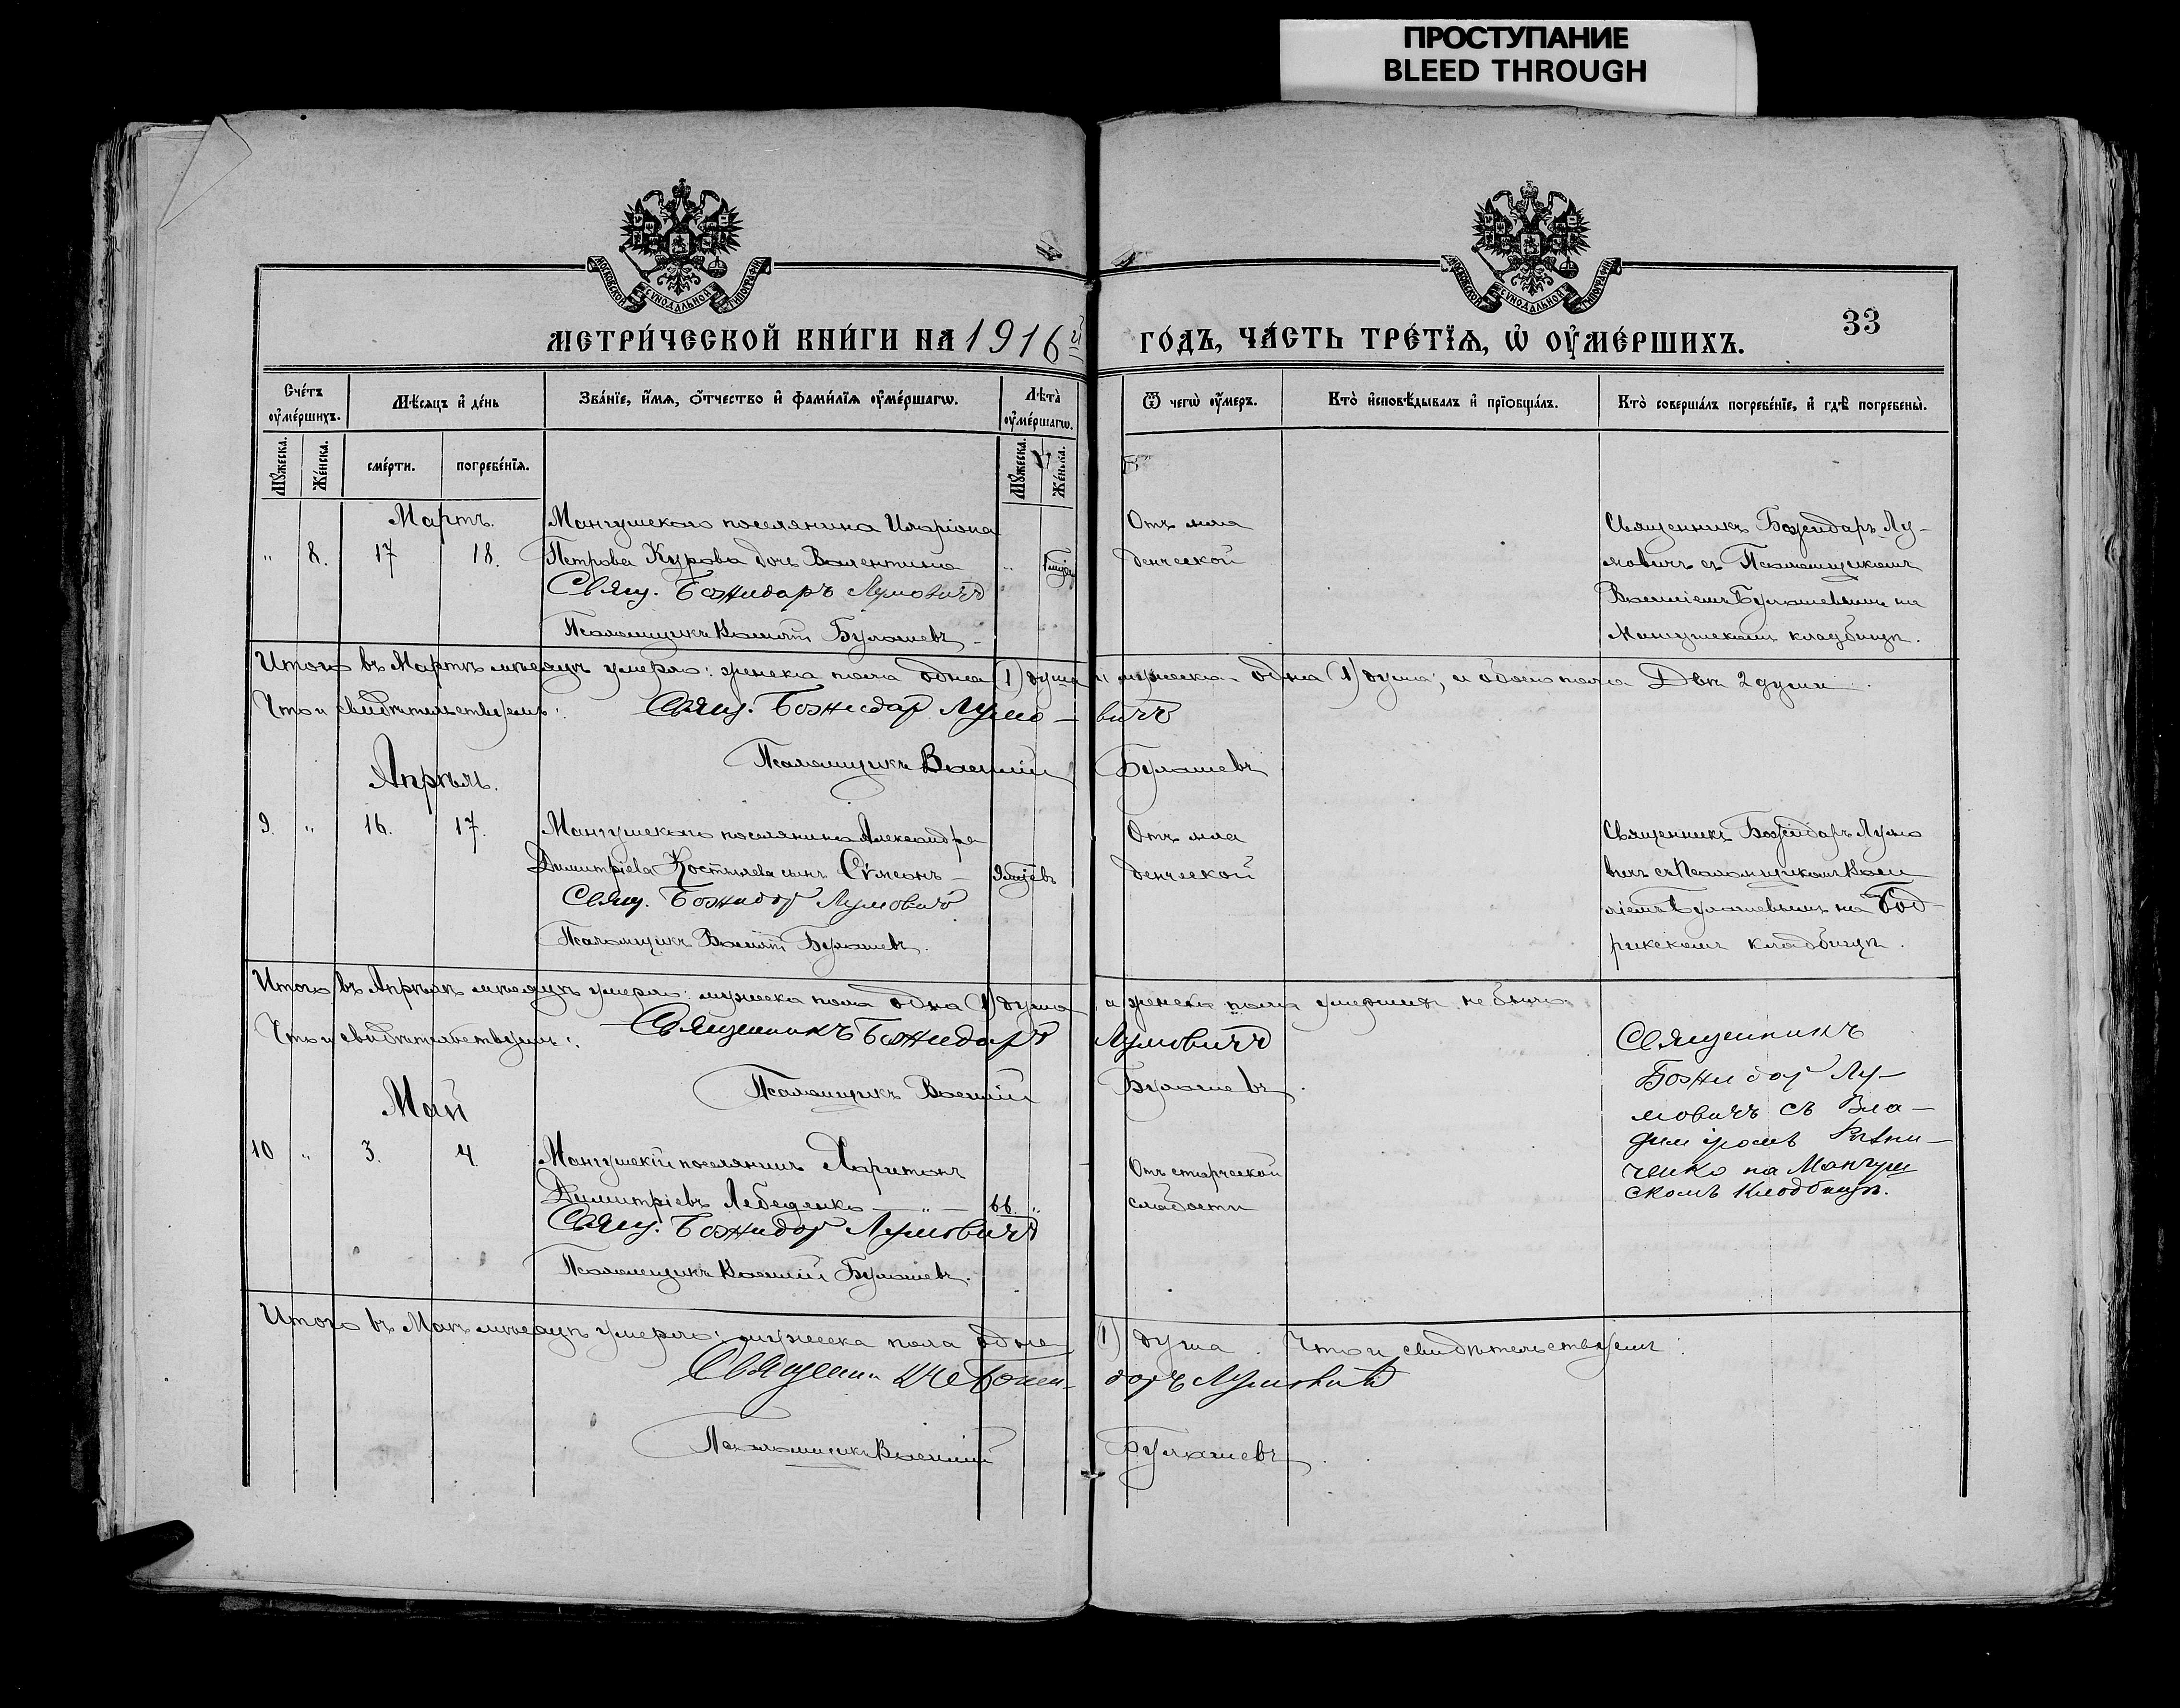 ПРОСТУПАНИЕ
BLEED THROUGH
МОСКОВСКОЙ СѴНОДАЛЬНОЙ ТИПОГРАФІИ
МОСКОВСКОЙ СѴНОДАЛЬНОЙ ТИПОГРАФІИ
33
МЕТРИ́ЧЕСКОЙ КНИ́ГИ НА 1916й ГО́ДЪ, ЧА́СТЬ ТРЕ́ТЇѦ, Ѡ҆ ОУ҆МЕ́РШИХЪ.
Сче́тъ оу҆ме́ршихъ.
Мꙋ́жеска.
Же́нска.
Мѣ́сѧцъ и҆ де́нь
сме́рти.
погребе́нїѧ.
Зва́нїе, и҆́мѧ, ѻ҆́тчество и҆ фами́лїѧ оу҆ме́ршагѡ.
Лѣ́та̀ оу҆ме́ршагѡ.
Мꙋ́жеска.
Же́нска.
Ѿ чегѡ̀ оу҆́меръ.
Кто̀ и҆сповѣ́дывалъ и҆ прїѻбща́лъ.
Кто̀ соверша́лъ погребе́нїе, и҆ гдѣ̀ погребены̀.
Мартъ.
" 8. 17 18.
Мангушскаго поселянина Иларіона
Петрова Курова дочь Валентина
Свящ. Божидаръ Лумовичъ
Псаломщикъ Василій Булашевъ
Отъ мла
денческой
Священникъ Божидаръ Лу-
мовичъ съ Псаломщикомъ
Василіемъ Булашевымъ на
Мангушскомъ кладбищѣ.
Итого въ Мартѣ мѣсяцѣ умерло: женска пола одна (1) душа и мужеска - одна (1) душа; и обоего пола Двѣ 2 души.
Что и свидѣтельствуемъ: Свящ. Божидар Лумо-вичъ
Псаломщикъ Василій Булашевъ
Апрѣль.
9. " 16. 17.
Мангушскаго поселянина Александра
Димитріева Костылева сынъ Сѵмеонъ -
Свящ. Божидар Лумовичъ
Псаломщикъ Василій Булашевъ.
Отъ мла
денческой
Священникъ Божидаръ Лумо
вичъ съ Псаломщикомъ Васи
ліемъ Булашевымъ на
кладбищѣ.
Итого въ Апрѣлѣ мѣсяцѣ умерло: мужеска пола одна (1) душа а женска пола умершихъ не было.
Что и свидѣтельствуемъ: Священникъ Божидаръ Лумовичъ
Псаломщикъ Василій Булашевъ.
Май
10 " 3. 4.
Мангушскій поселянинъ Харитонъ
Димитріевъ Лебеденко - " - 66. "
Свящ. Божидар Лумовичъ
Псаломщикъ Василій Булашевъ.
Отъ старческой
слабости
Священникъ
Божидар Лу-
мовичъ съ Вла-
диміромъ
на Мангуш
скомъ кладбищѣ.
Итого въ Маѣ мѣсяцѣ умерло: мужеска пола одна (1) душа. Что и свидѣтельствуемъ:
Священникъ Божи-даръ Лумовичъ
Псаломщикъ Василій Булашевъ.